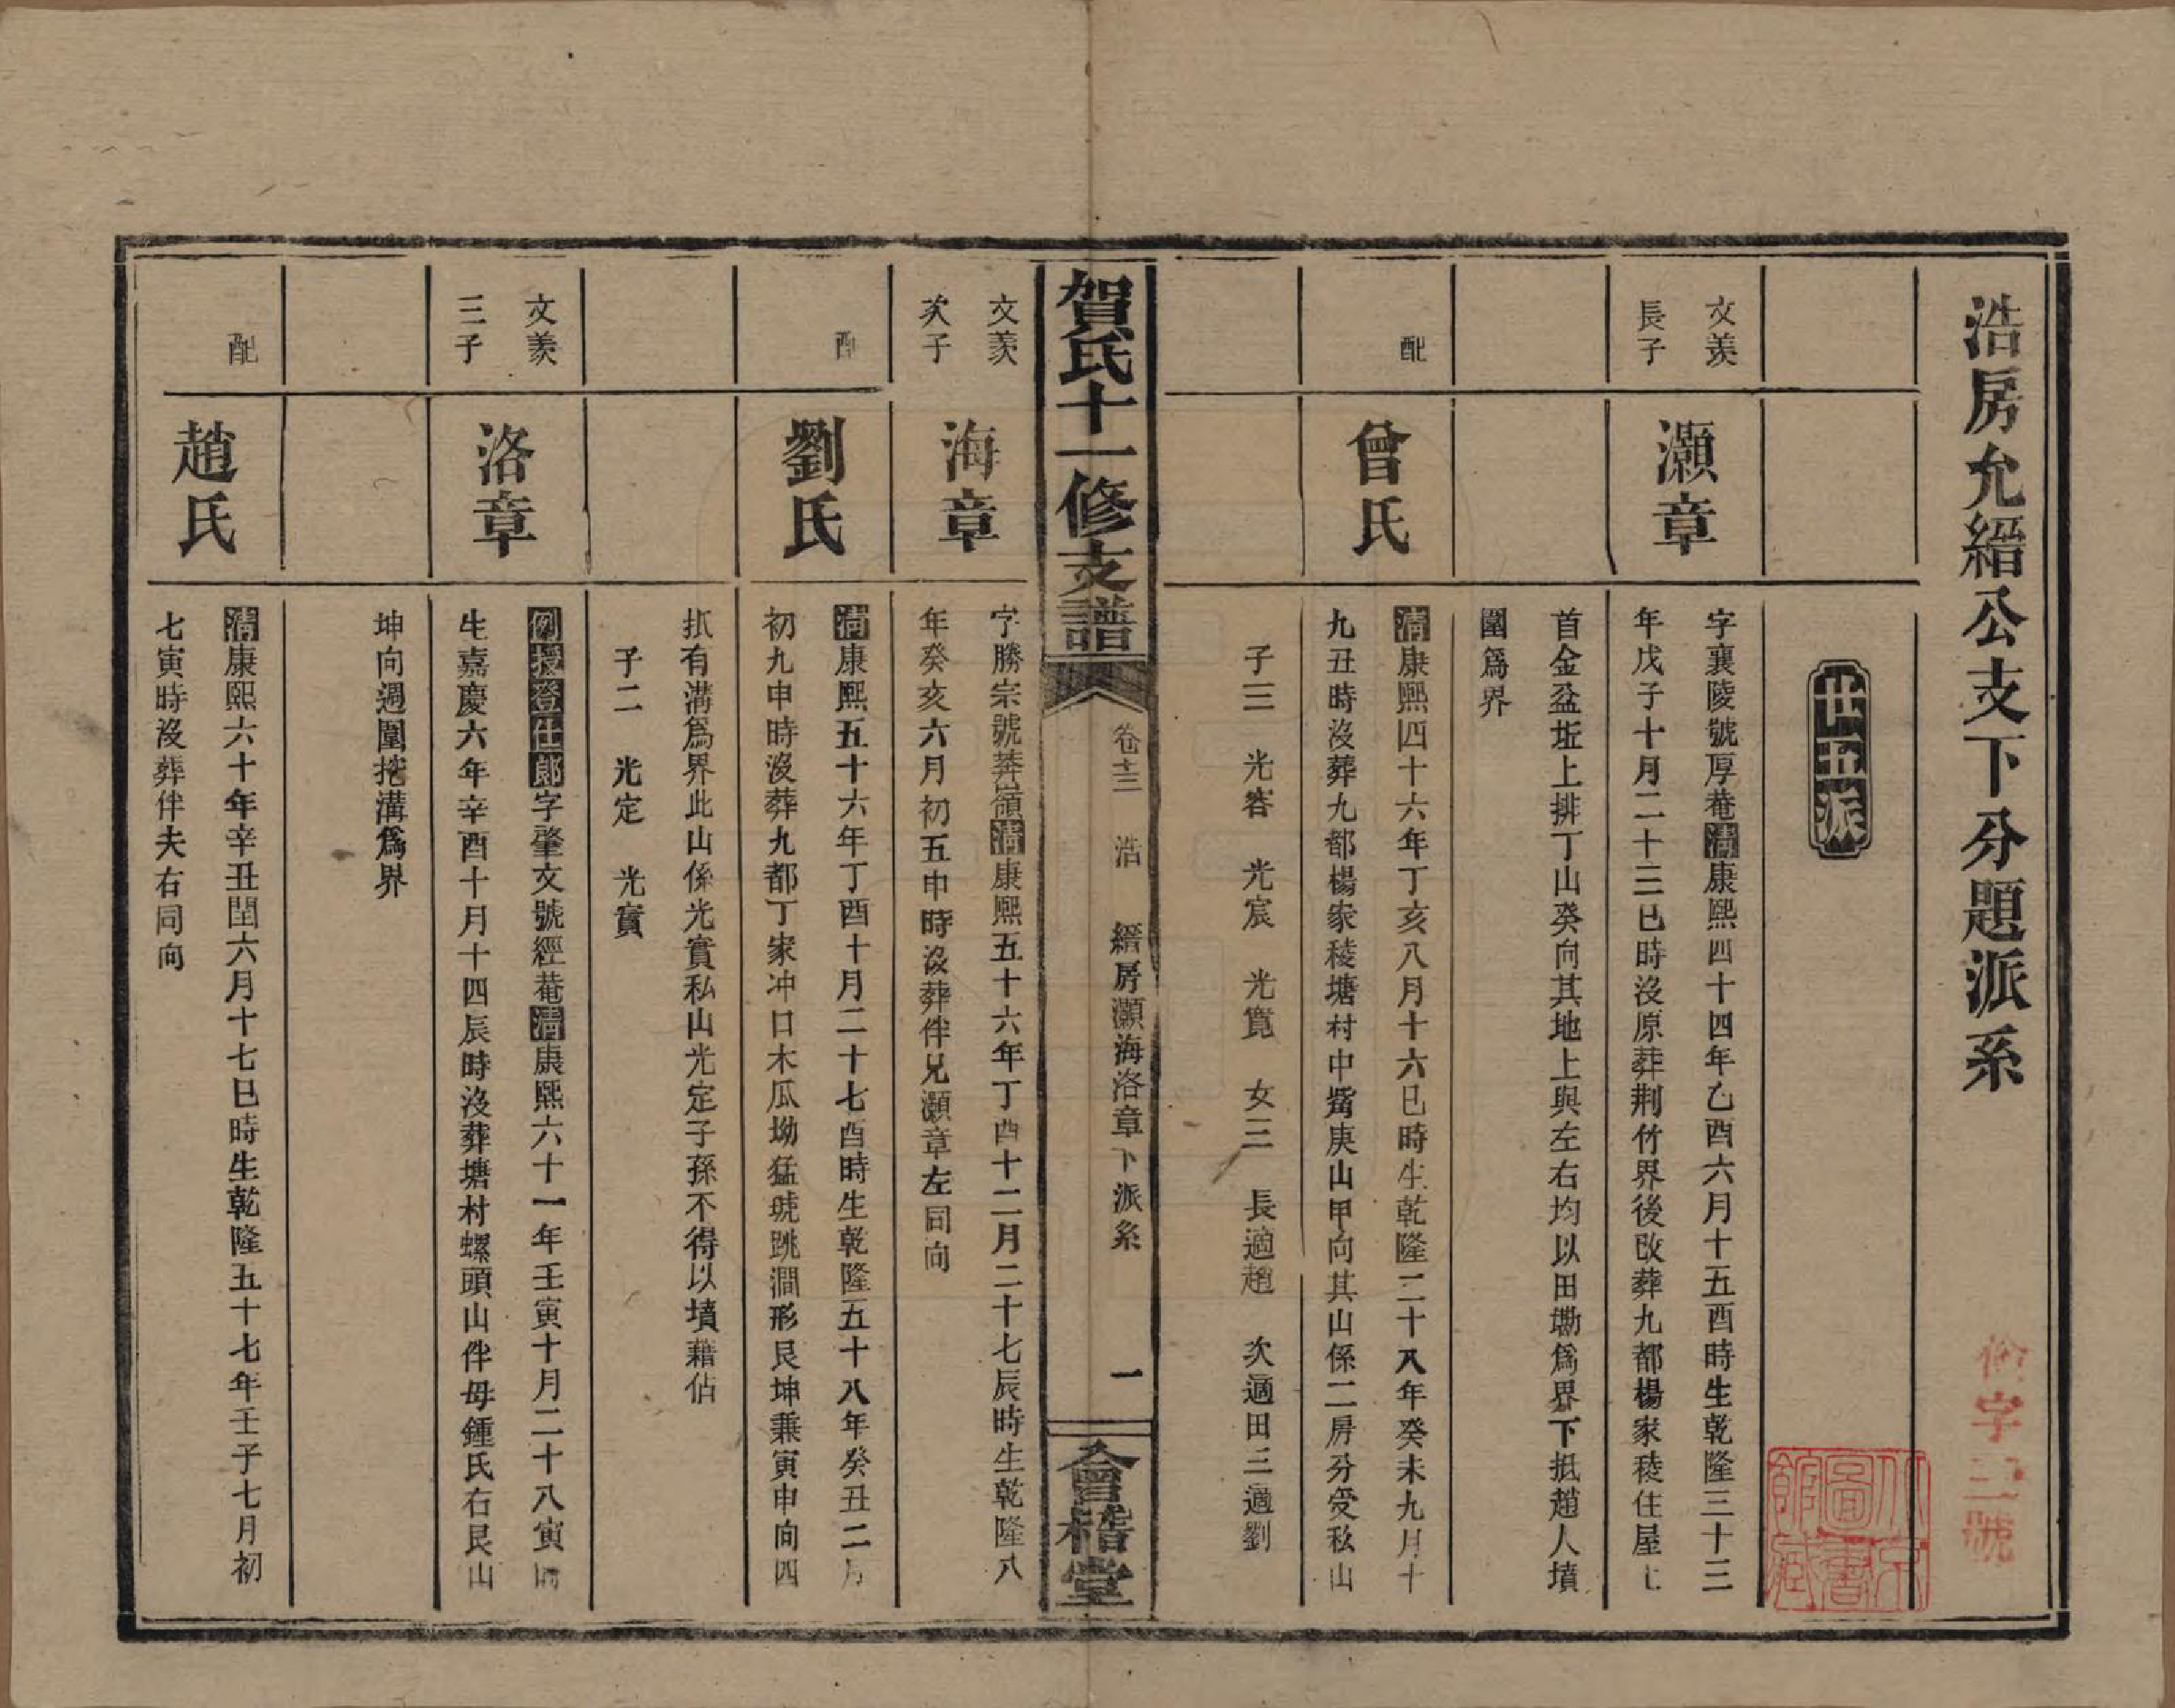 浩房允縉公支下分題派系
世五派
文羨
長子
灝章
字襄陵號厚菴清康熙四十四年乙酉六月十五酉時生乾隆三十三
年戊子十月二十三巳時沒原葬荆竹界後改葬九都楊家稜住屋上
首金盆坵上排丁山癸向其地上與左右均以田墈爲界下抵趙人墳
圍爲界
配
曾氏
清康熙四十六年丁亥八月十六巳時生乾隆二十八年癸未九月十
九丑時沒葬九都楊家稜塘村中嘴庚山甲向其山係二房分受私山
子三 光容 光宸 光寬 女三 長適趙 次適田三適劉
賀氏十一修支譜
卷十三 浩 縉房灝海洛章下派系 一
會稽堂
文羨
次子
海章
字勝宗號莽嶺清康熙五十六年丁酉十二月二十七辰時生乾隆八
年癸亥六月初五申時沒葬伴兄灝章左同向
配
劉氏
清康熙五十六年丁酉十月二十七酉時生乾隆五十八年癸丑二月
初九申時沒葬九都丁家冲口木瓜坳猛琥跳澗形艮坤兼寅申向四
抓有溝爲界此山係光實私山光定子孫不得以墳藉佔
子二 光定 光實
文羨
三子
洛章
例授登仕郎字肇文號經菴清康熙六十一年壬寅十月二十八寅時
生嘉慶六年辛酉十月十四辰時沒葬塘村螺頭山伴母鍾氏右艮山
坤向週圍挖溝爲界
配
趙氏
清康熙六十年辛丑閏六月十七巳時生乾隆五十七年壬子七月初
七寅時沒葬伴夫右同向
字 號
北京圖書館藏